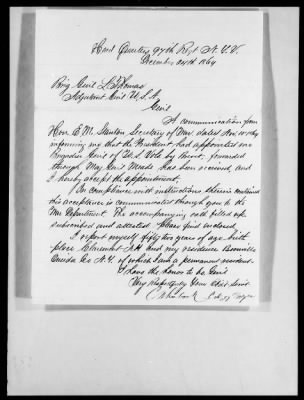 Head Quarters 97th Regt N.Y.V.
December 24th 1864
Brig Genl L. Thomas
Adjutant Genl U.S.A.
Genl
A communication from
Hon. E.M. Stanton Secretary of War dated Nov
informing me that the President had appointed me
Brigadier Genl of U.S. Vols by Brevet, forwarded
through Maj Genl Meade has been received, and
I hereby accept the appointment.
In compliance with instructions therein contained
this acceptance is communicated through you to the
War Department. The accompanying oath filled up
subscribed and attested. Please find inclosed.
I report myself fifty two years of age. birth
place Claremont N.H. and my residence Boonville
Oneida Co N.Y. of which I am a permanent resident.
I have the honor to be Genl
Very Respectfully Your Obdt Servt
Col 97